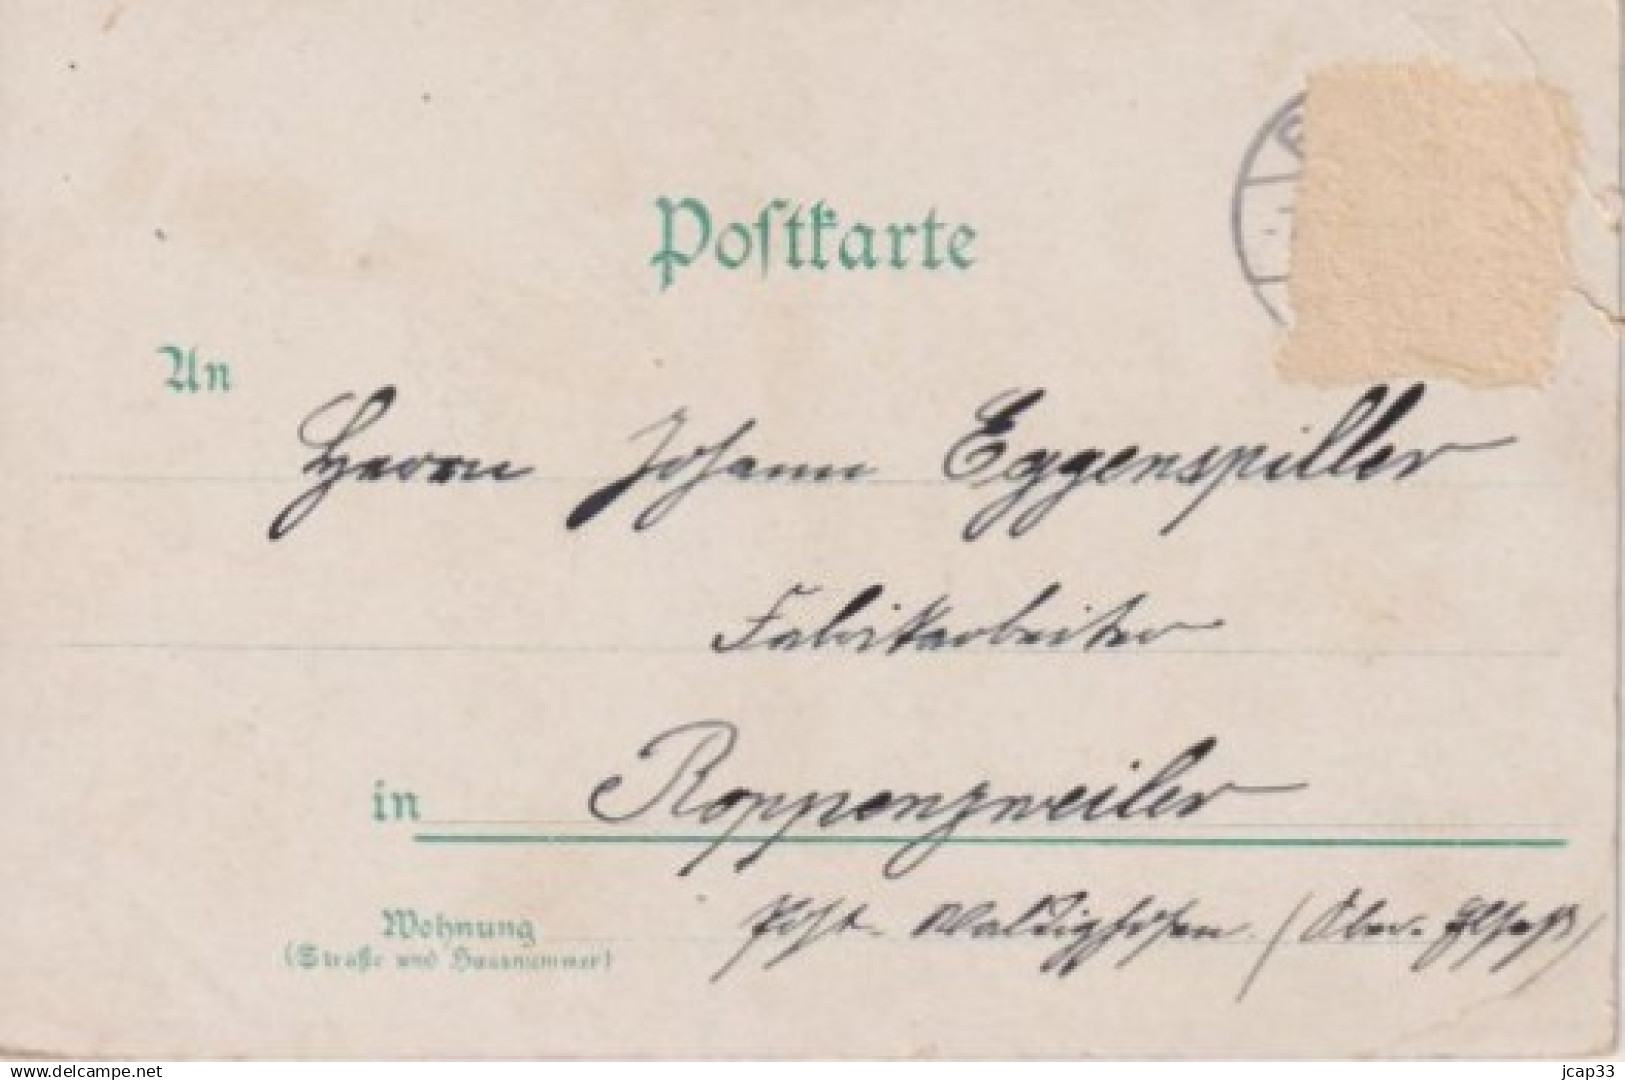 Postkarte
An
Herrn Johann Eggenspiller
Fabrikarbeiter
in Roppenzweiler
Wohnung
(Straße und Hausnummer)
Post. Waldighofen. (Ober. Elsaß)
www.delcampe.net
jcap33